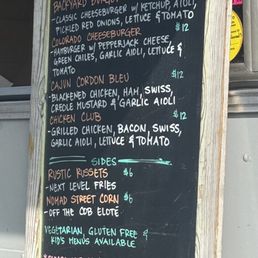 BACKYARD BURGER
- CLASSIC CHEESEBURGER W/ KETCHUP, AIOLI,
PICKLED RED ONIONS, LETTUCE & TOMATO
COLORADO CHEESEBURGER $12
- HAMBURGER W/ PEPPERJACK CHEESE,
GREEN CHILES, GARLIC AIOLI, LETTUCE &
TOMATO
CAJUN CORDON BLEU $12
- BLACKENED CHICKEN, HAM, SWISS,
CREOLE MUSTARD & GARLIC AIOLI
CHICKEN CLUB $12
- GRILLED CHICKEN, BACON, SWISS,
GARLIC AIOLI, LETTUCE & TOMATO
SIDES
RUSTIC RUSSETS $6
- NEXT LEVEL FRIES
NOMAD STREET CORN $6
- OFF THE COB ELOTE
VEGETARIAN, GLUTEN FREE &
KID'S MENUS AVAILABLE